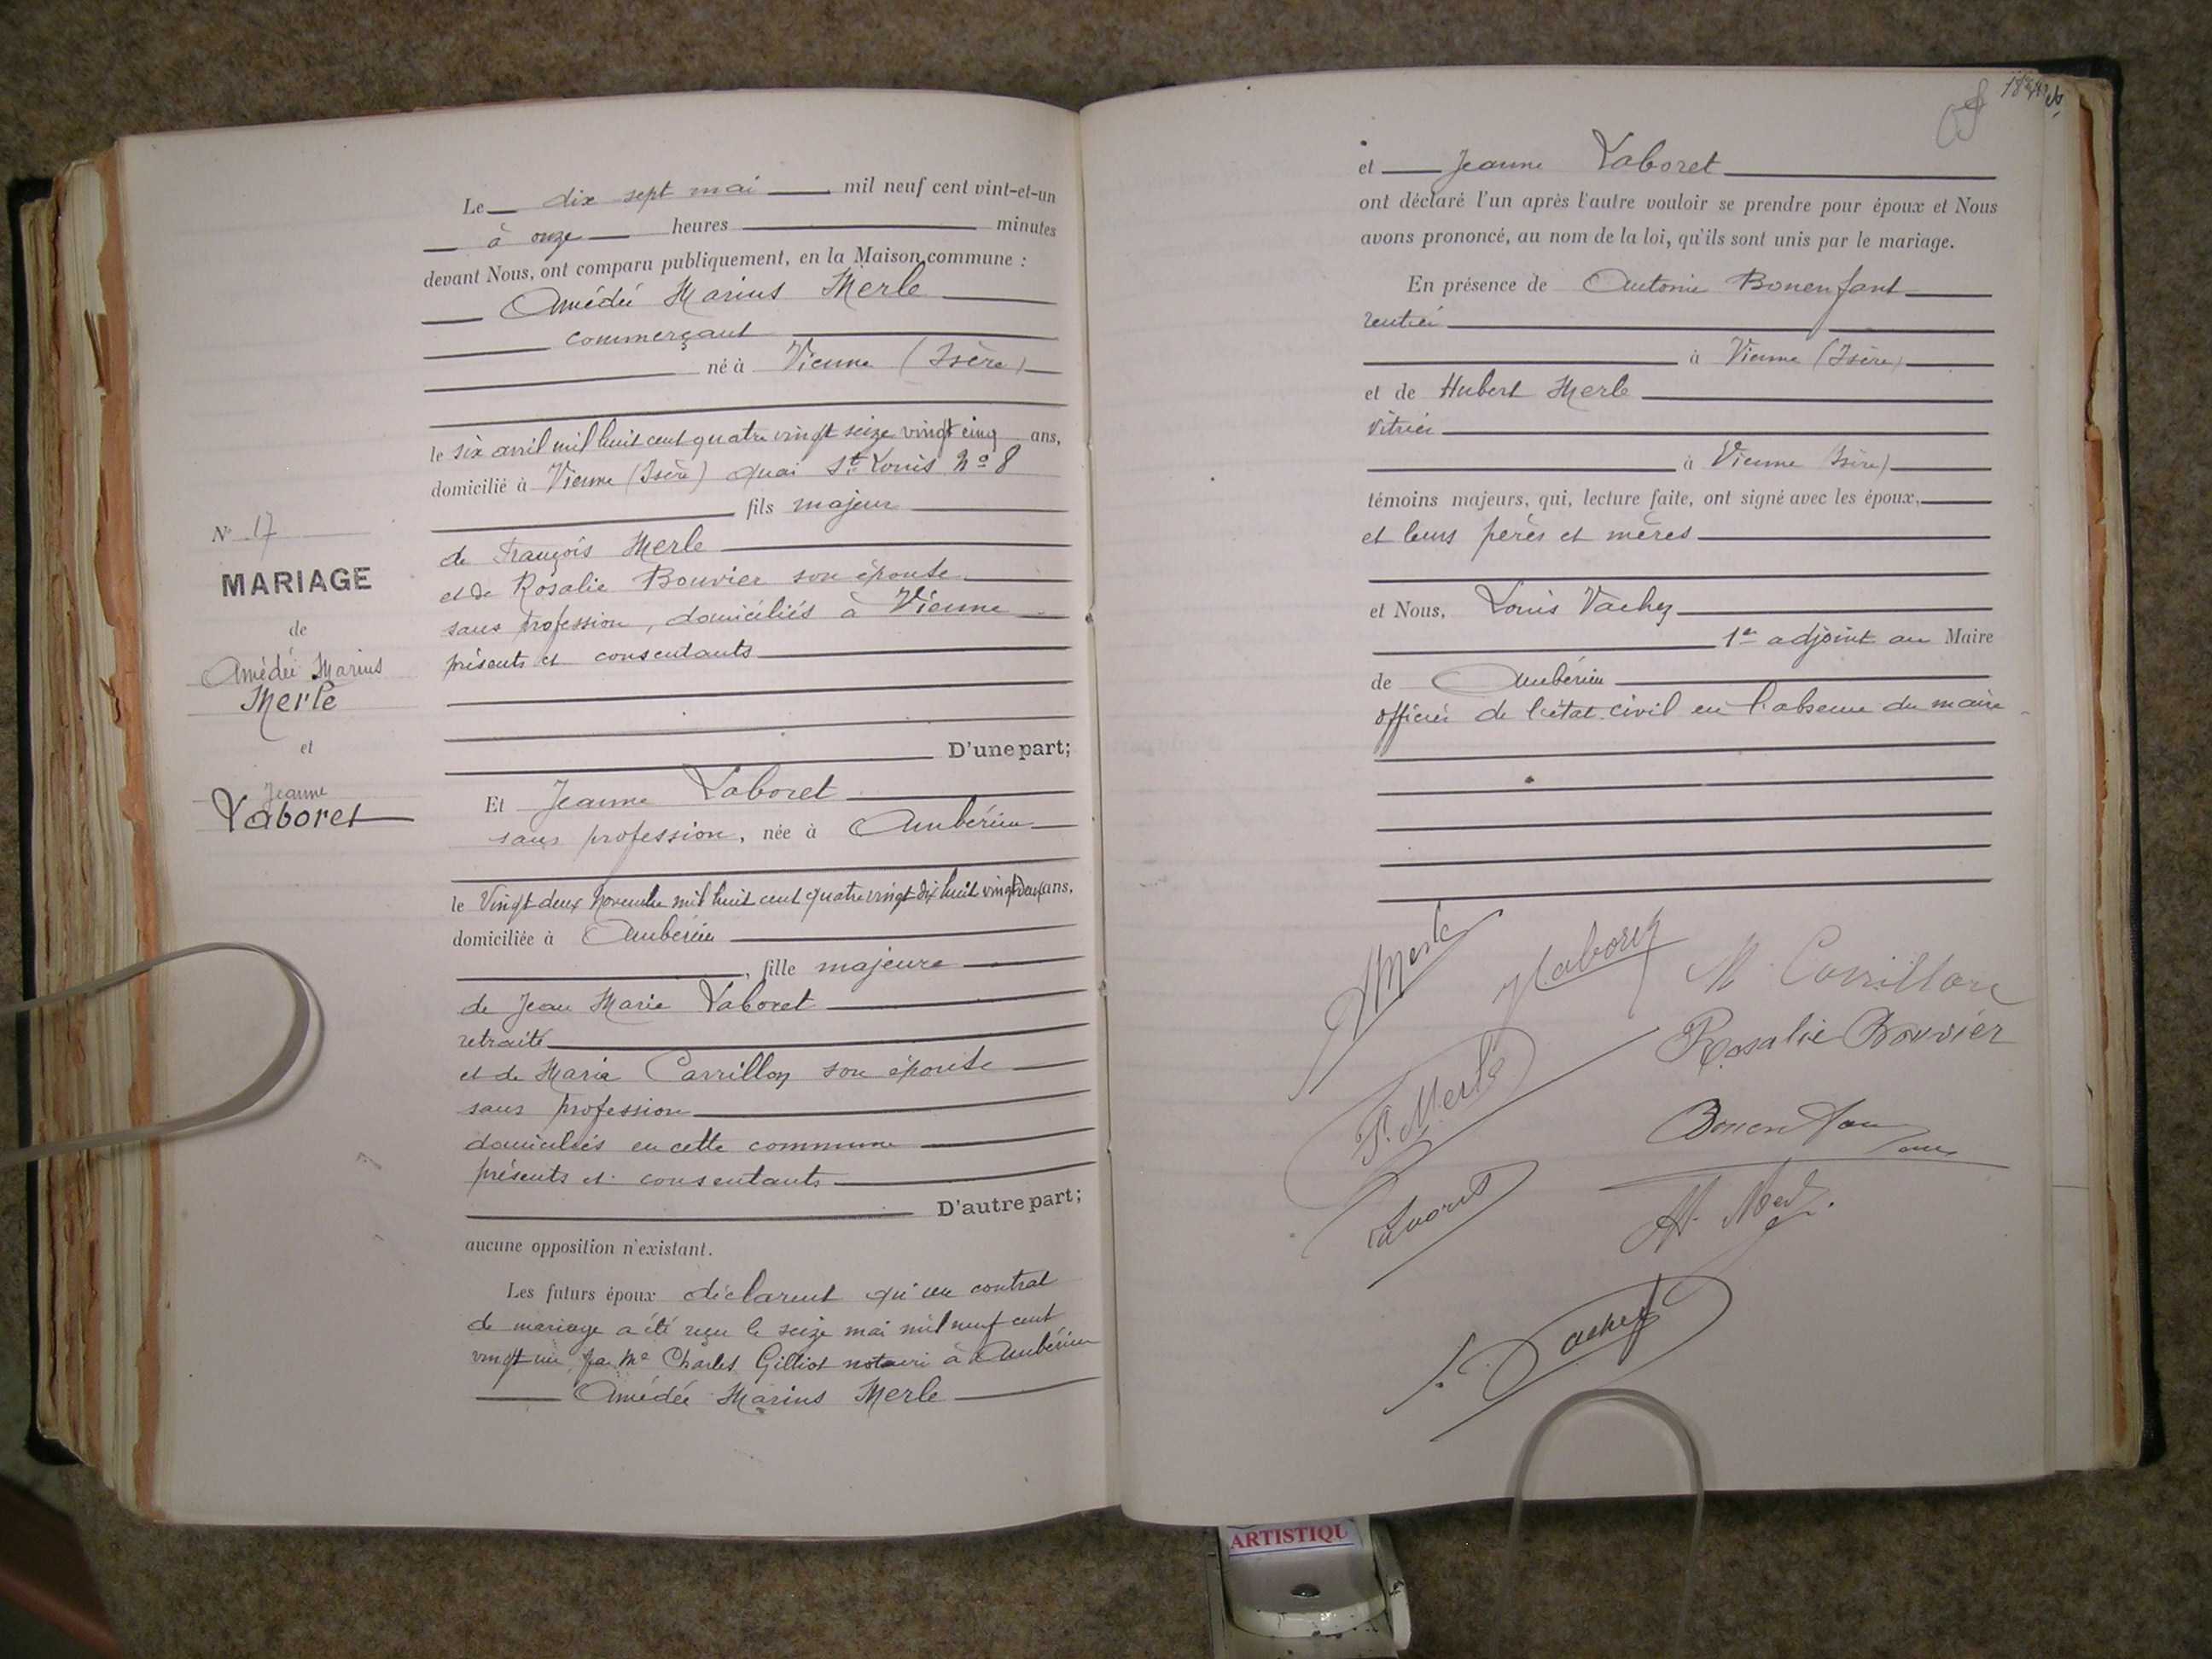 N° 17
MARIAGE
de
Amédée Marius
Merle
et
Jeanne
Laboret
Le dix sept mai mil neuf cent vint-et-un
à onze heures minutes
devant Nous, ont comparu publiquement, en la Maison commune :
Amédée Marius Merle
commerçant
né à Vienne (Isère)
le six avril mil huit cent quatre vingt seize vingt cinq ans,
domicilié à Vienne (Isère) quai St Louis No 8
fils majeur
de François Merle
et de Rosalie Bouvier son épouse
sans profession, domiciliés à Vienne
présents et consentants
D'une part;
Et Jeanne Laboret
sans profession, née à Ambérieu
le Vingt deux Novembre mil huit cent quatre vingt dix huit vingt deux ans,
domiciliée à Ambérieu
, fille majeure
de Jean Marie Laboret
retraité
et de Maria Carrillon son épouse
sans profession
domiciliés en cette commune
présents et consentants
D'autre part;
aucune opposition n'existant.
Les futurs époux déclarent qu'un contrat
de mariage a été reçu le seize mai mil neuf cent
vingt un par Me Charles Gilliot notaire à Ambérieu
Amédée Marius Merle
et Jeanne Laboret
ont déclaré l'un après l'autre vouloir se prendre pour époux et Nous
avons prononcé, au nom de la loi, qu'ils sont unis par le mariage.
En présence de Antoine Bonenfant
rentier
à Vienne (Isère)
et de Hubert Merle
vitrier
à Vienne (Isère)
témoins majeurs, qui, lecture faite, ont signé avec les époux,
et leurs pères et mères
et Nous, Louis Vachey
1er adjoint au Maire
de Ambérieu
officier de l'état civil en l'absence du maire
AMerle
J Laboret
M Carrillon
F. Merle
Rosalie Bouvier
Laboret
H. Merle
L. Vachey
ARTISTIQU